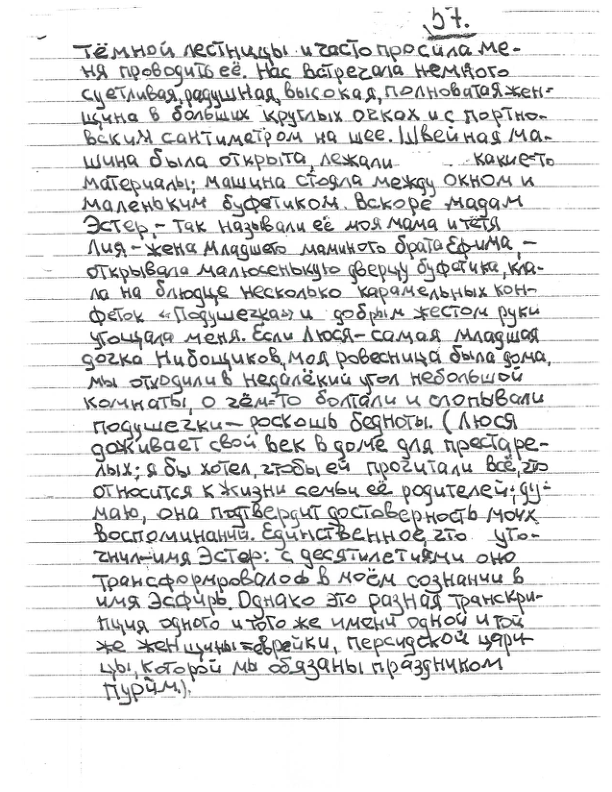 57.
тёмной лестницы и часто просила ме-
ня проводить её. Нас встречала немного
суетливая, радушная, высокая, полноватая жен-
щина в больших круглых очках и с портно-
вским сантиметром на шее. Швейная ма-
шина была открыта, лежали какие-то
материалы; машина стояла между окном и
маленьким буфетиком. Вскоре мадам
Эстер, - так называли её моя мама и тётя
Лия - жена младшего маминого брата Ефима, -
открывала малюсенькую дверцу буфетика, кла-
ла на блюдце несколько карамельных кон-
феток «Подушечка» и добрым жестом руки
угощала меня. Если Люся - самая младшая
дочка Нибощиков, моя ровесница была дома,
мы отходили в недалёкий угол небольшой
комнаты, о чём-то болтали и слопывали
подушечки - роскошь бедноты. (Люся
доживает свой век в доме для престаре-
лых; я бы хотел, чтобы ей прочитали всё, что
относится к жизни семьи её родителей; ду-
маю, она подтвердит достоверность моих
воспоминаний. Единственное, что уто-
чнил - имя Эстер: с десятилетиями оно
трансформировалось в моём сознании в
имя Эсфирь. Однако это разная транскри-
пция одного и того же имени одной и той
же женщины - еврейки, персидской цари-
цы, которой мы обязаны праздником
Пурим.).